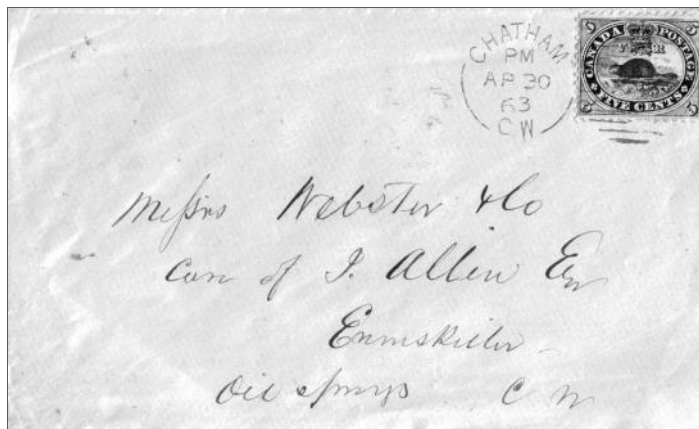 CHATHAM
PM
AP 30
63
C.W
CANADA POSTAGE
5 5
V R
FIVE CENTS
5 5
Messrs Webster & Co
Care of J. Allen Esq
Enniskillen
Oil Springs C W